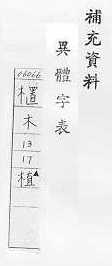 補充資料
異體字表
06066
櫃
木
13
17
植▲